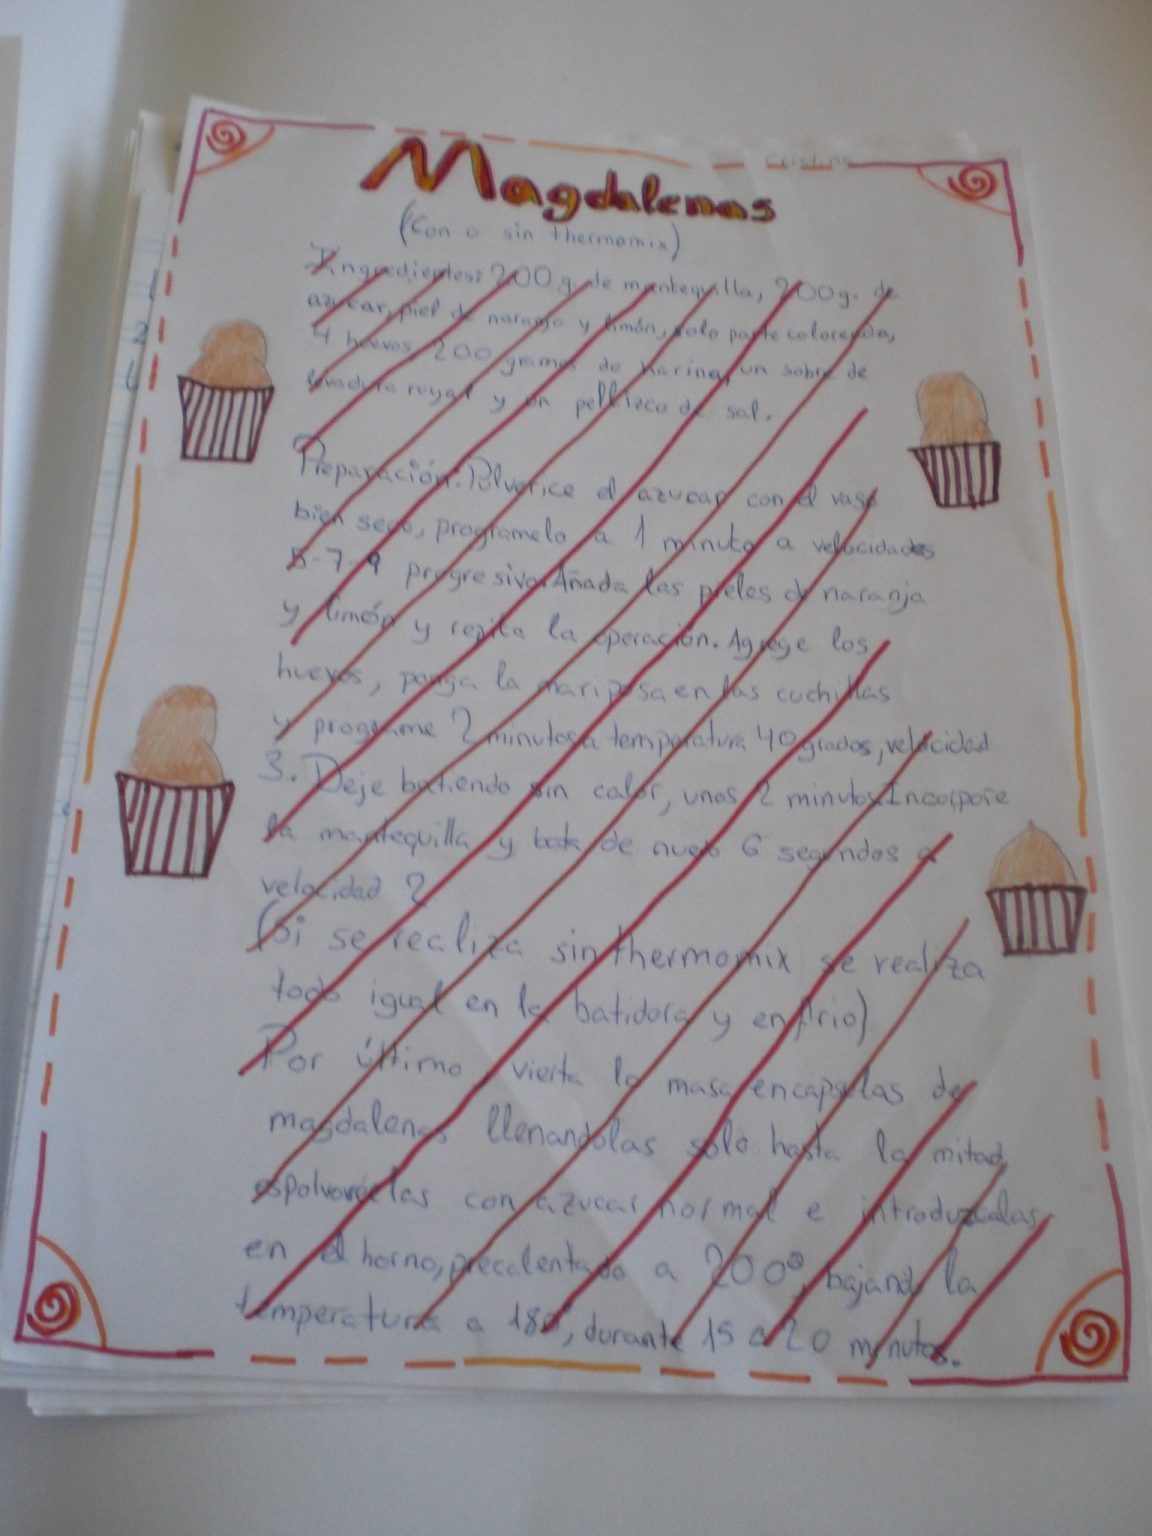 Cristina
Magdalenas
(Con o sin thermomix)
Ingredientes: 200 g. de mantequilla, 200g. de
azucar, piel de naranja y limón, solo parte coloreada,
4 huevos, 200 gramos de harina, un sobre de
levadura royal y un pellizco de sal.
Preparación: Pulverice el azucar con el vaso
bien seco, programelo a 1 minuto a velocidades
5-7-9 progresivo. Añada las pieles de naranja
y limón y repita la operación. Agrege los
huevos, ponga la mariposa en las cuchillas
y programe 2 minutos a temperatura 40 grados, velocidad
3. Deje batiendo sin calor, unos 2 minutos. Incorpore
la mantequilla y bata de nuevo 6 segundos a
velocidad 2
(Si se realiza sin thermomix se realiza
todo igual en la batidora y en frio)
Por último, vierta la masa en capsulas de
magdalenas llenandolas solo hasta la mitad,
espolvoréelas con azucar normal e introduzcalas
en el horno, precalentado a 200º, bajando la
temperatura a 180º, durante 15 a 20 minutos.